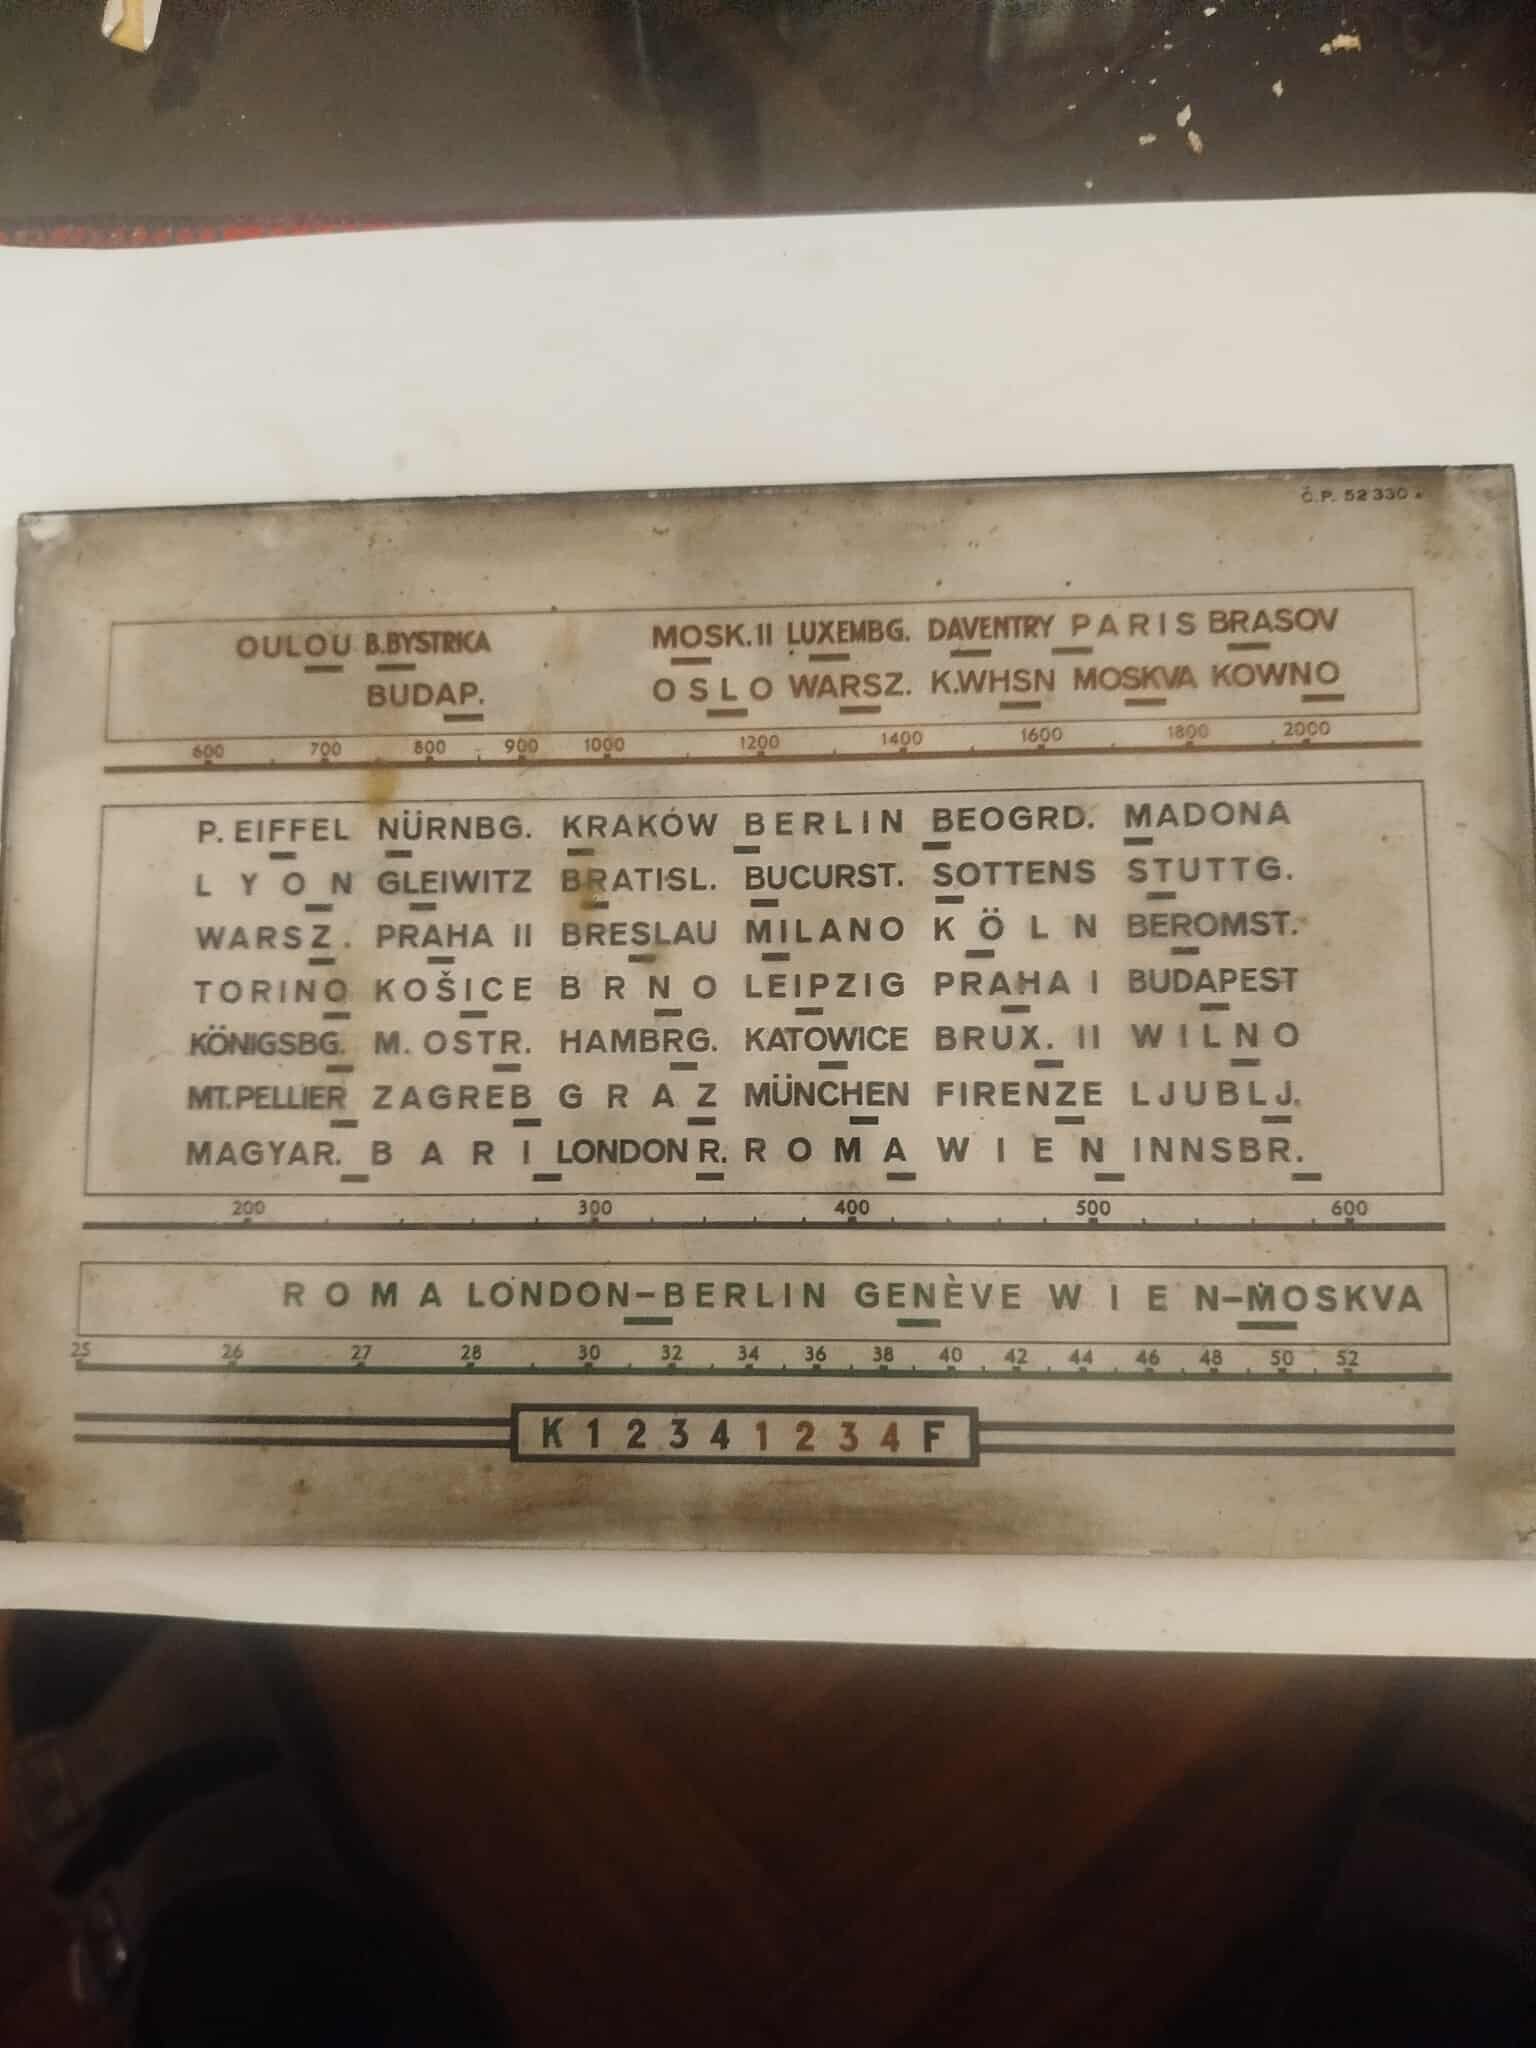 Č.P. 52 330
OULOU B.BYSTRICA MOSK.II LUXEMBG. DAVENTRY PARIS BRASOV
BUDAP. OSLO WARSZ. K.WHSN MOSKVA KOWNO
600 700 800 900 1000 1200 1400 1600 1800 2000
P. EIFFEL NÜRNBG. KRAKÓW BERLIN BEOGRD. MADONA
LYON GLEIWITZ BRATISL. BUCURST. SOTTENS STUTTG.
WARSZ. PRAHA II BRESLAU MILANO KÖLN BEROMST.
TORINO KOŠICE BRNO LEIPZIG PRAHA I BUDAPEST
KÖNIGSBG. M. OSTR. HAMBRG. KATOWICE BRUX. II WILNO
MT.PELLIER ZAGREB GRAZ MÜNCHEN FIRENZE LJUBLJ.
MAGYAR. BARI LONDON R. ROMA WIEN INNSBR.
200 300 400 500 600
ROMA LONDON–BERLIN GENÈVE WIEN–MOSKVA
25 26 27 28 30 32 34 36 38 40 42 44 46 48 50 52
K 1 2 3 4 1 2 3 4 F